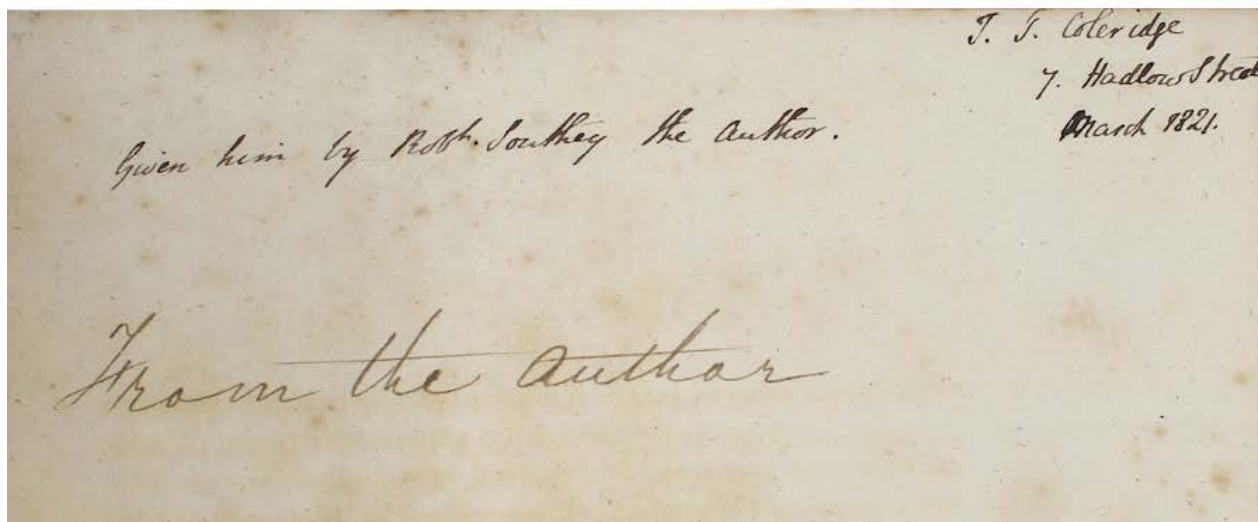 J. T. Coleridge
7. Hadlow Street
March 1821.
Given him by Robt. Southey the Author.
From the author